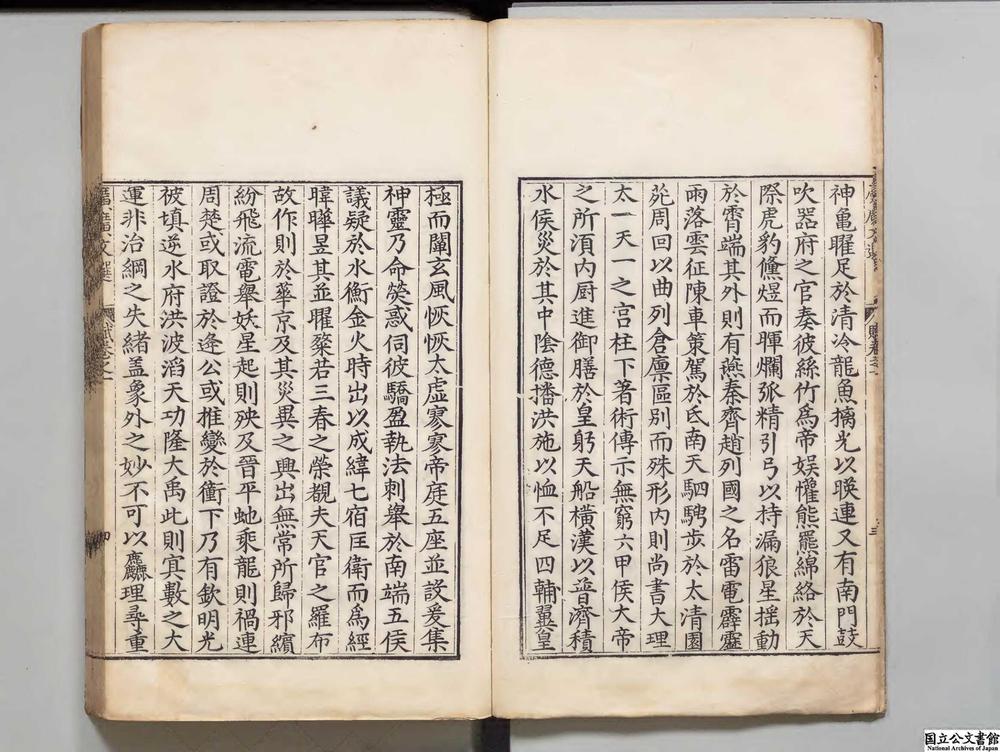 神龜曜足於清冷龍魚摛光以暎連又有南門鼓
吹器府之官奏彼絲竹爲帝娱懽熊羆綿絡於天
際虎豹儵煜而暉爛弧精引弓以持漏狼星揺動
於霄端其外則有燕秦齊趙列國之名雷電霹靂
雨落雲征陳車策駕於氐南天駟騁步於太清園
苑周回以曲列倉廪區别而殊形内則尚書大理
太一天一之宫柱下著術傳示無窮六甲候大帝
之所須内厨進御膳於皇躬天船横漢以普濟積
水候災於其中陰德播洪施以恤不足四輔翼皇
極而闡玄風恢恢太虚寥寥帝庭五座並設爰集
神靈乃命熒惑伺彼驕盈執法刺舉於南端五侯
議疑於水衡金火時出以成緯七宿匡衛而爲經
暐曄昱其並曜粲若三春之榮覩夫天官之羅布
故作則於華京及其災異之興出無常所歸邪繽
紛飛流電舉妖星起則殃及晉平虵乘龍則禍連
周楚或取證於逄公或推變於衝下乃有欽明光
被填逆水府洪波滔天功隆大禹此則冥數之大
運非治綱之失緒盖象外之妙不可以麤理尋重
四
三
国立公文書館
National Archives of Japan